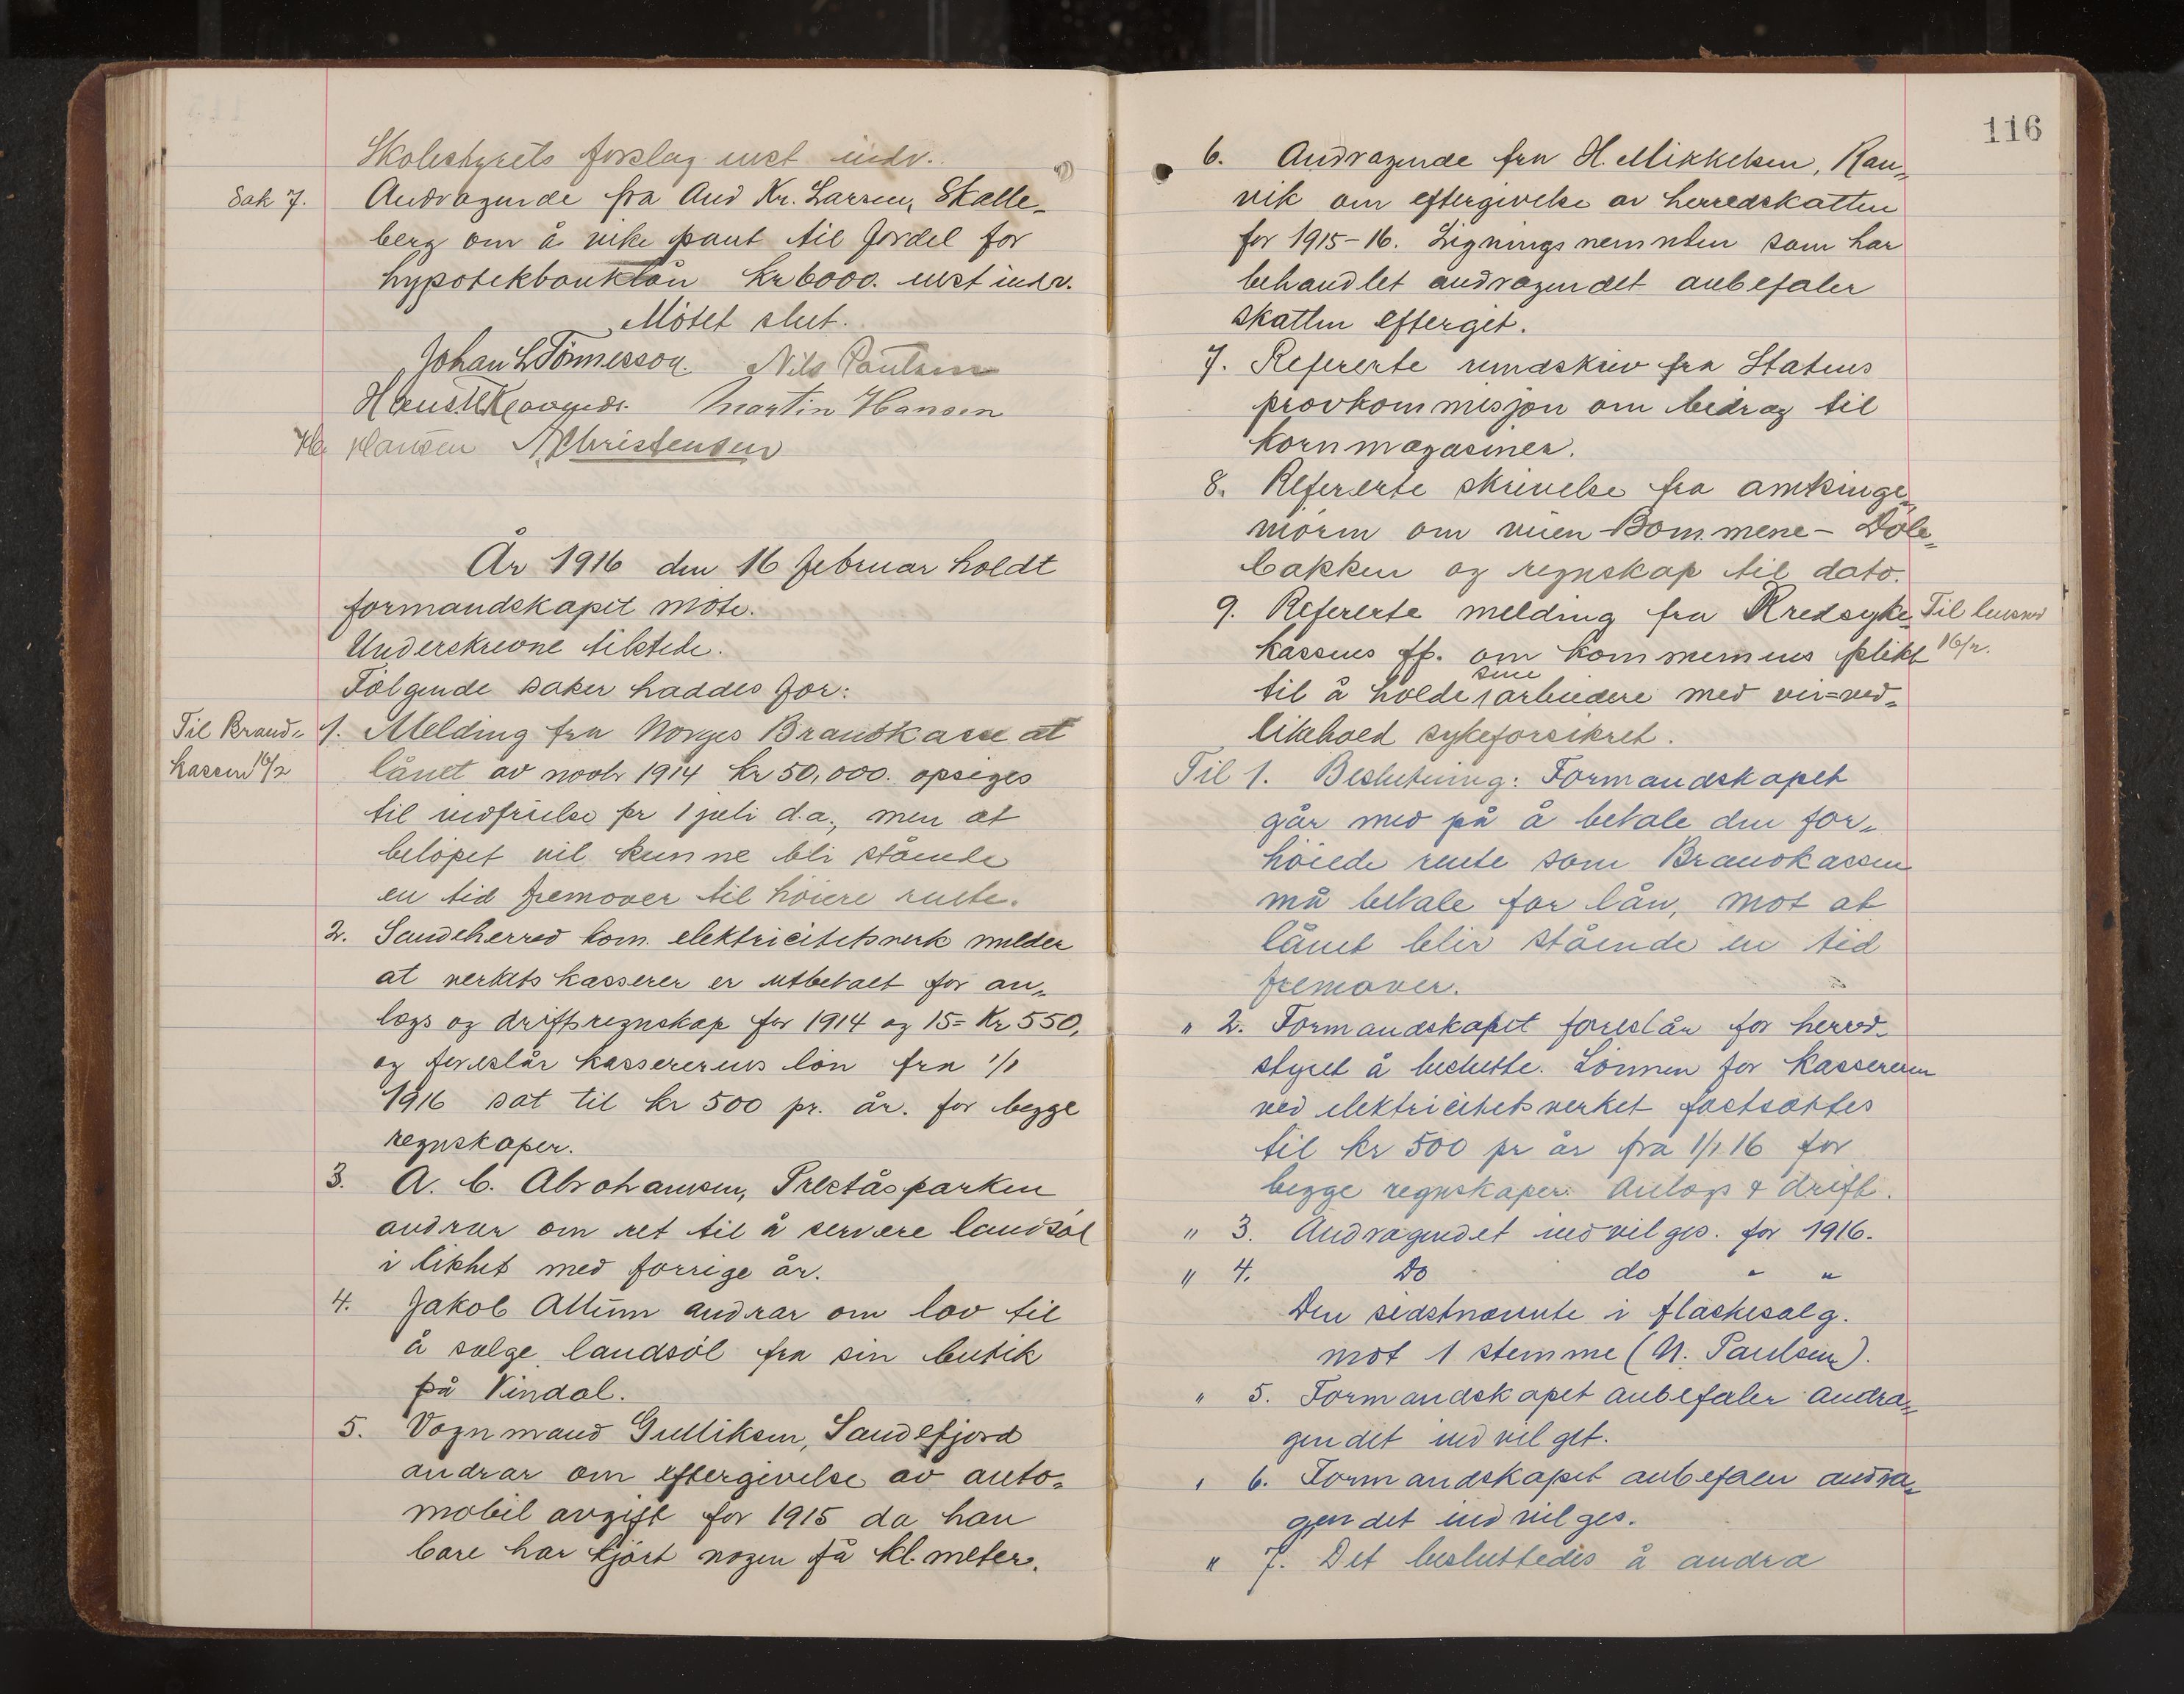 Skolestyrets forslag enst. indv.
Sak 7. Andragende fra And Kr. Larsen, Skalle-
berg om å vike pant til fordel for
hypotekbanklån kr 6000. enst indv.
Møtet slut.
Johan L Tönnesson. Nils Paulsen
Martin Hansen
Hansen A Christensen
År 1916 den 16 februar holdt
formandskapet møte.
Underskrevne tilstede.
Følgende saker haddes for:
Til Brand-
kassen 16/2
1. Melding fra Norges Brandkasse at
lånet av novbr 1914 kr 50,000. opsiges
til indfrielse pr 1 juli d.a., men at
beløpet vil kunne bli stående
en tid fremover til høiere rente.
2. Sandeherred kom. elektricitetsverk melder
at verkets kasserer er utbetalt for an-
legs og driftsregnskap for 1914 og 15 = Kr 550,
og foreslår kassererens løn fra 1/1
1916 sat til kr 500 pr. år. for begge
regnskaper.
3. A. C. Abrahamsen, Preståsparken
andrar om ret til å servere landsøl
i likhet med forrige år.
4. Jakob Allum andrar om lov til
å sælge landsøl fra sin butik
på Vindal.
5. Vognmand Gulliksen, Sandefjord
andrar om eftergivelse av auto-
mobil avgift for 1915 da han
bare har kjørt nogen få kl. meter.
116
6. Andragende fra H. Mikkelsen, Ran-
vik om eftergivelse av herredskatten
for 1915-16. Ligningsnemnden som har
behandlet andragendet anbefaler
skatten efterget.
7. Refererte rundskriv fra Statens
provkommisjon om bidrag til
kornmagasiner.
8. Refererte skrivelse fra amtsinge-
niøren om veien Bommene - Døle-
bakken og regnskap til dato.
9. Refererte melding fra Kredssyke-
kassens ff. om kommunens plikt
til å holde sine arbeidere med vei=ved-
likehold sykeforsikret.
Til
16/2.
Til 1. Beslutning: Formandskapet
går med på å betale den for-
høiede rente som Brandkassen
må betale for lån, mot at
lånet blir stående en tid
fremover.
" 2. Formandskapet foreslår for herred-
styret å beslutte. Lønnen for kassereren
ved elektricitetsverket fastsættes
til kr 500 pr år fra 1/1 16 for
begge regnskaper. Anlegs & drift.
" 3. Andragendet indvilges. for 1916.
" 4. Do do " "
Den sidstnævnte i flaskesalg.
mot 1 stemme (N. Paulsen).
" 5. Formandskapet anbefaler andra-
gendet indvilget.
" 6. Formandskapet anbefaler andra-
gendet indvilges.
" 7. Det besluttedes å andra